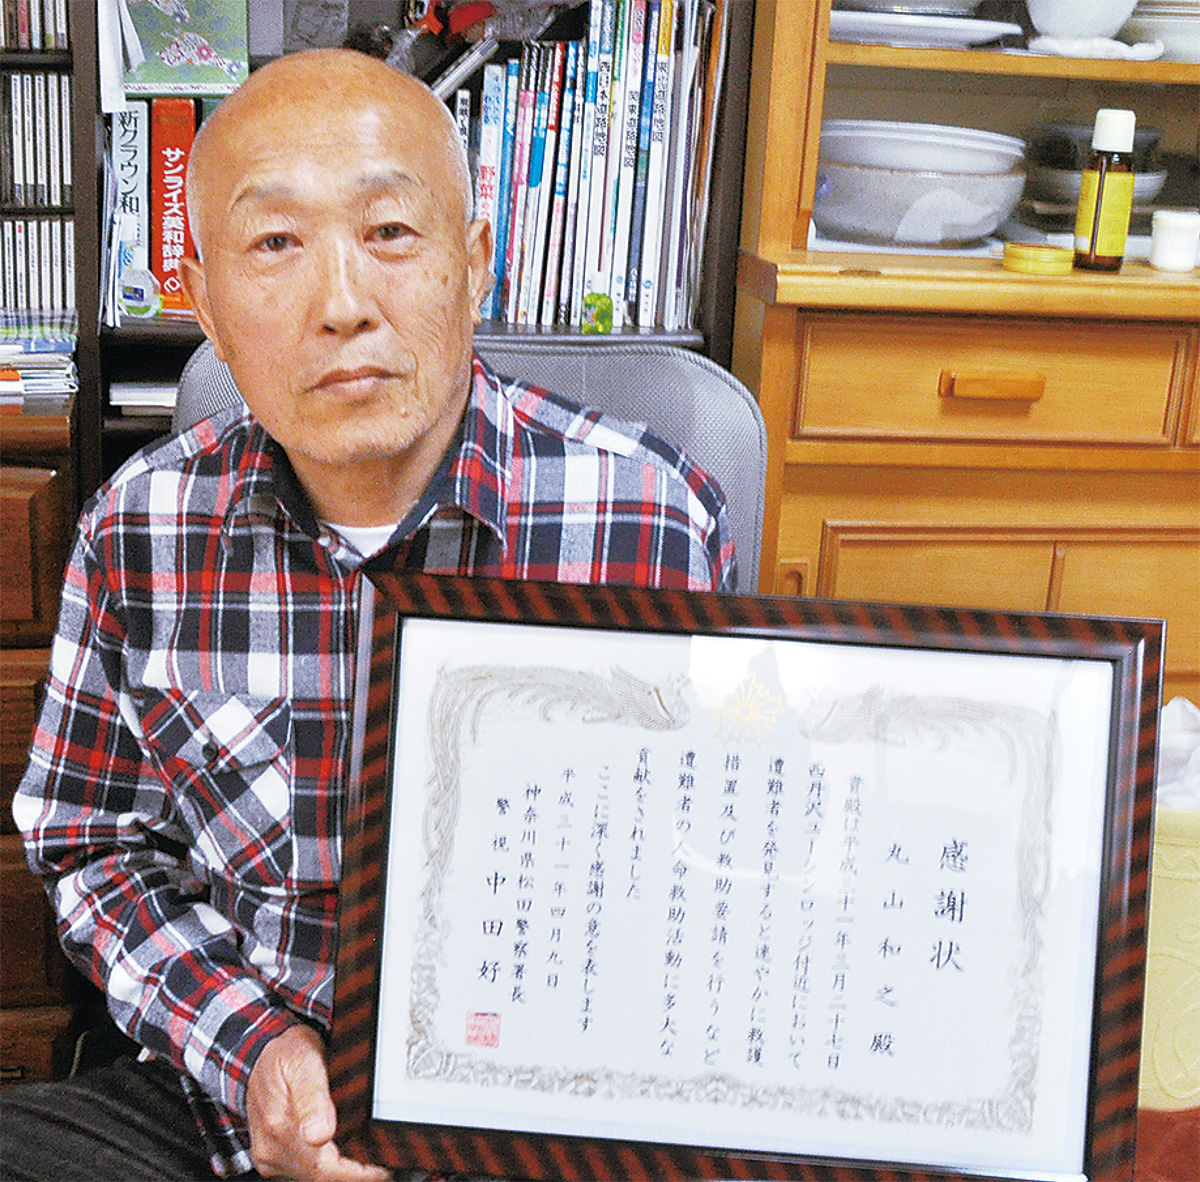 感謝状
丸山和之殿
貴殿は平成三十一年三月二十七日
西丹沢ユーシンロッジ付近において
遭難者を発見すると速やかに救護
措置及び救助要請を行うなど
遭難者の人命救助活動に多大な
貢献をされました
ここに深く感謝の意を表します
平成三十一年四月九日
神奈川県松田警察署長
警視中田好
新クラウン和
サンライズ英和辞典
西日本道路地図
関東道路地図
東北道路地図